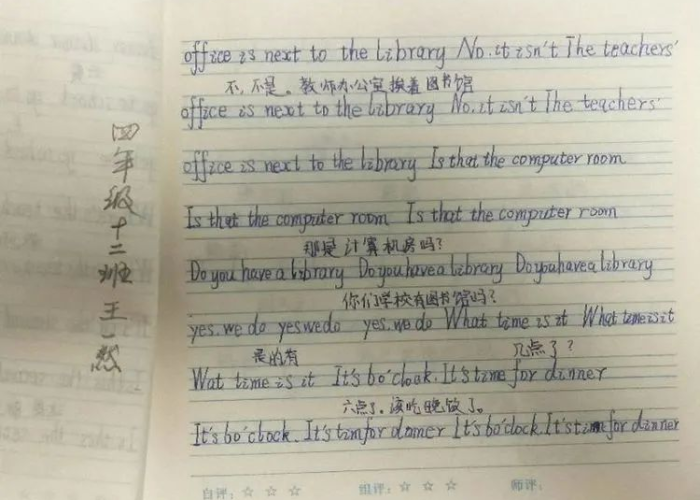 office is next to the library No.it isn't The teachers'
不,不是。教师办公室挨着图书馆
office is next to the library No.it isn't The teachers'
office is next to the library Is that the computer room
Is that the computer room Is that the computer room
那是计算机房吗?
Do you have a library Do you have a library Do you have a library
你们学校有图书馆吗?
yes.we do yes we do yes.we do What time is it What time is it
是的有 几点了?
Wat time is it It's bo'cloak.It's time for dinner
六点了。该吃晚饭了。
It's bo'clock. It's tim for dinner It's bo'clock.It's time for dinner
自评:☆ ☆ ☆ 组评:☆ ☆ ☆ 师评:
四年级十二班王一